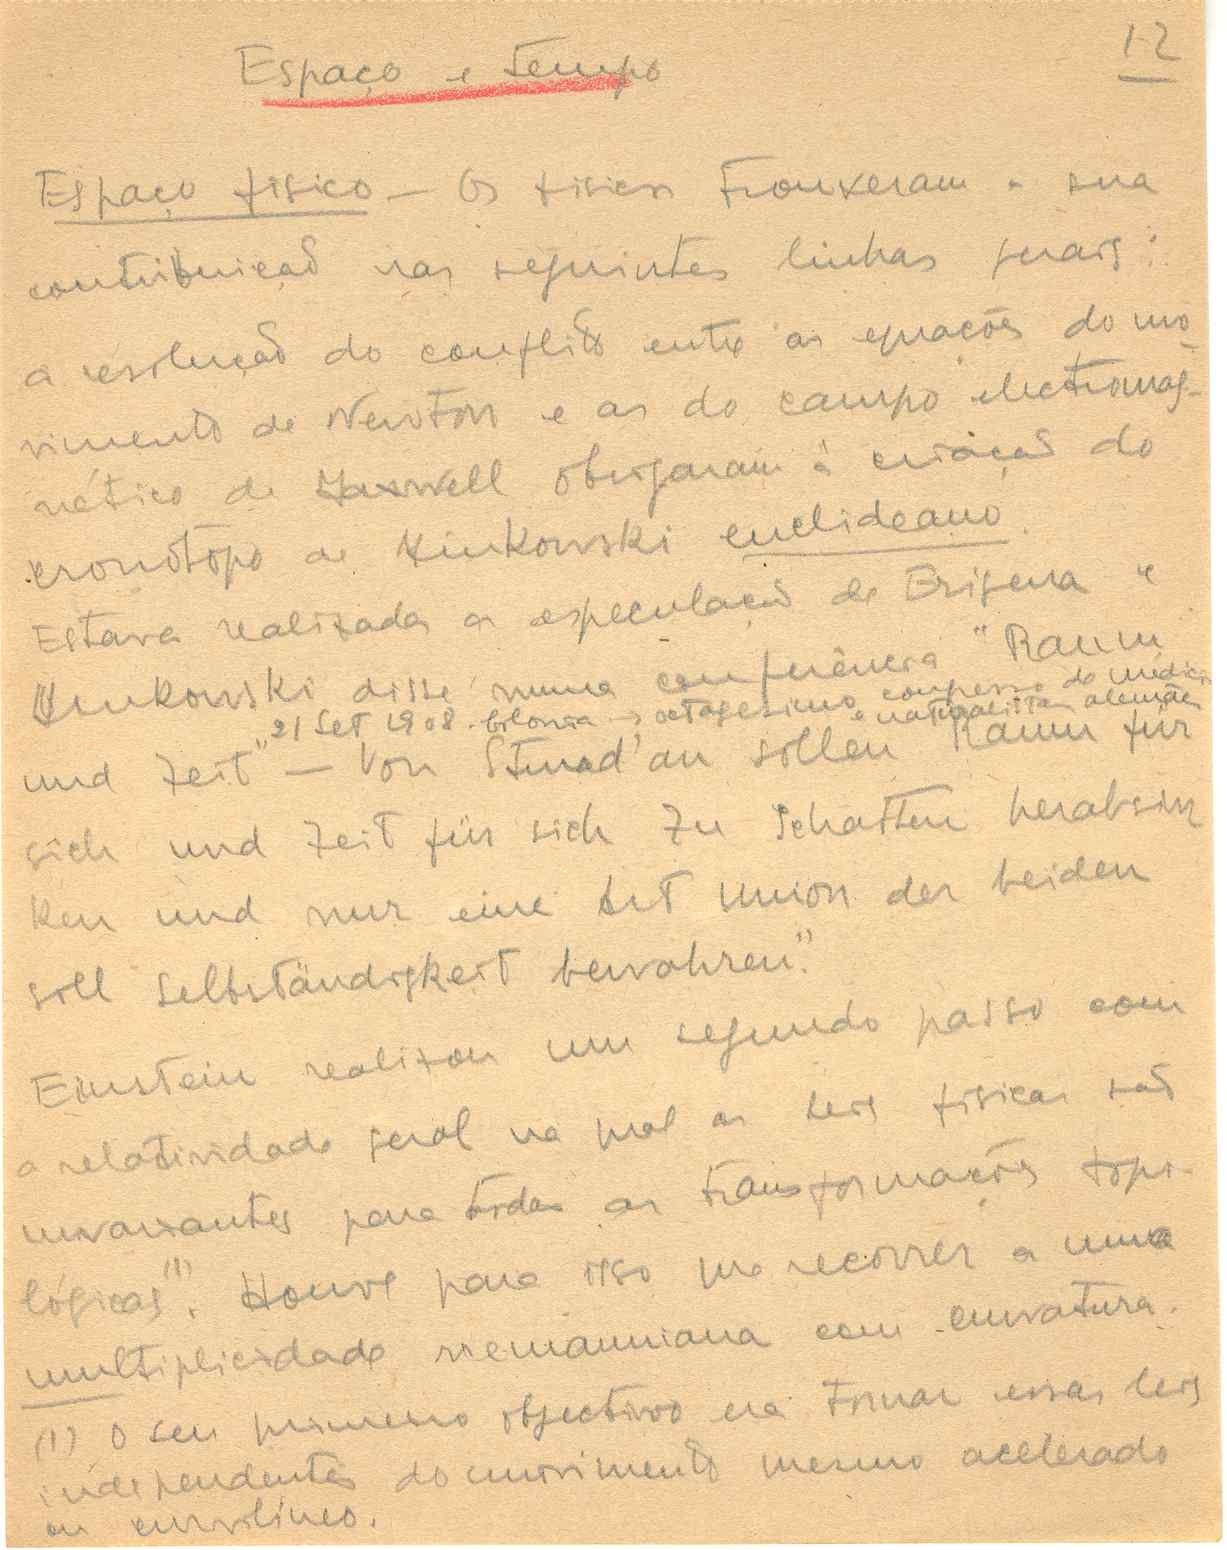 12
Espaço e tempo
Espaço físico – Os físicos trouxeram a sua
contribuição nas seguintes linhas gerais:
a resolução do conflito entre as equações do mo-
vimento de Newton e as do campo electromag-
nético de Maxwell obrigaram à criação do
cronótopo de Minkowski euclideano.
Estava realizada a especulação de Erigena e
Minkowski disse numa conferência "Raum
21 Set 1908 colonia → octogesimo congresso de médicos
e naturalistas alemães
und Zeit" – Von Stund' an sollen Raum für
sich und Zeit für sich zu Schatten herabsin
ken und nur eine Art Union der beiden
soll Selbständigkeit bewahren."
Einstein realizou um segundo passo com
a relatividade geral na qual as leis físicas são
invariantes para todas as transformações topo-
lógicas(1). Houve para isso que recorrer a uma
multiplicidade riemanniana com curvatura.
(1) O seu primeiro objectivo era tornar essas leis
independentes do movimento mesmo acelerado
ou curvilíneo.